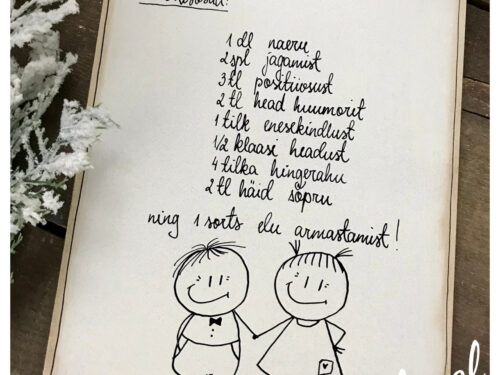 1 dl naeru
2 spl jagamist
3 tl positiivsust
2 tl head huumorit
1 tilk enesekindlust
1/2 klaasi headust
4 tilka hingerahu
2 tl häid sõpru
ning 1 sorts elu armastamist!